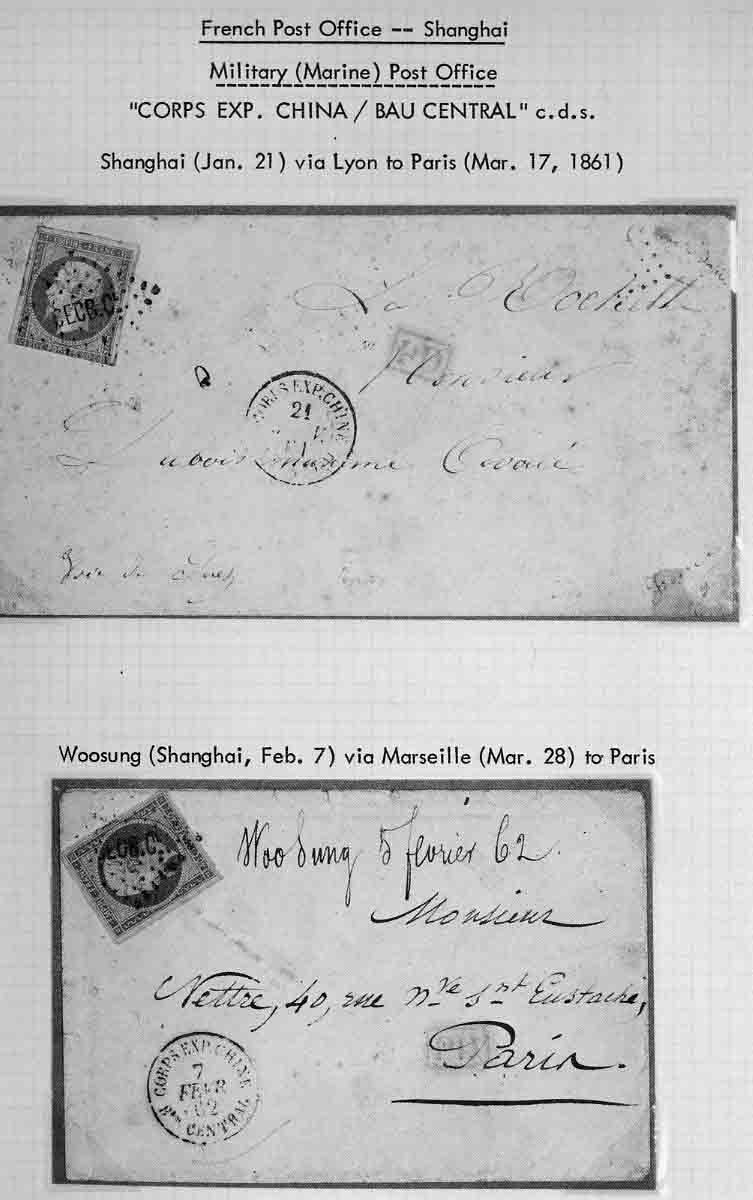 French Post Office -- Shanghai
Military (Marine) Post Office
"CORPS EXP. CHINA / BAU CENTRAL" c.d.s.
Shanghai (Jan. 21) via Lyon to Paris (Mar. 17, 1861)
EMPIRE FRANC
CECB.CL
La
PD
Monsieur
CORPS EXP. CHINE
21
Voie de Suez
Woosung (Shanghai, Feb. 7) via Marseille (Mar. 28) to Paris
ECB.CL
Woosung 5 février 62.
Monsieur
Nettre, 40, rue nve snt Eustache,
PD
Paris.
CORPS EXP. CHINE
7
FEVR
62
Bau CENTRAL